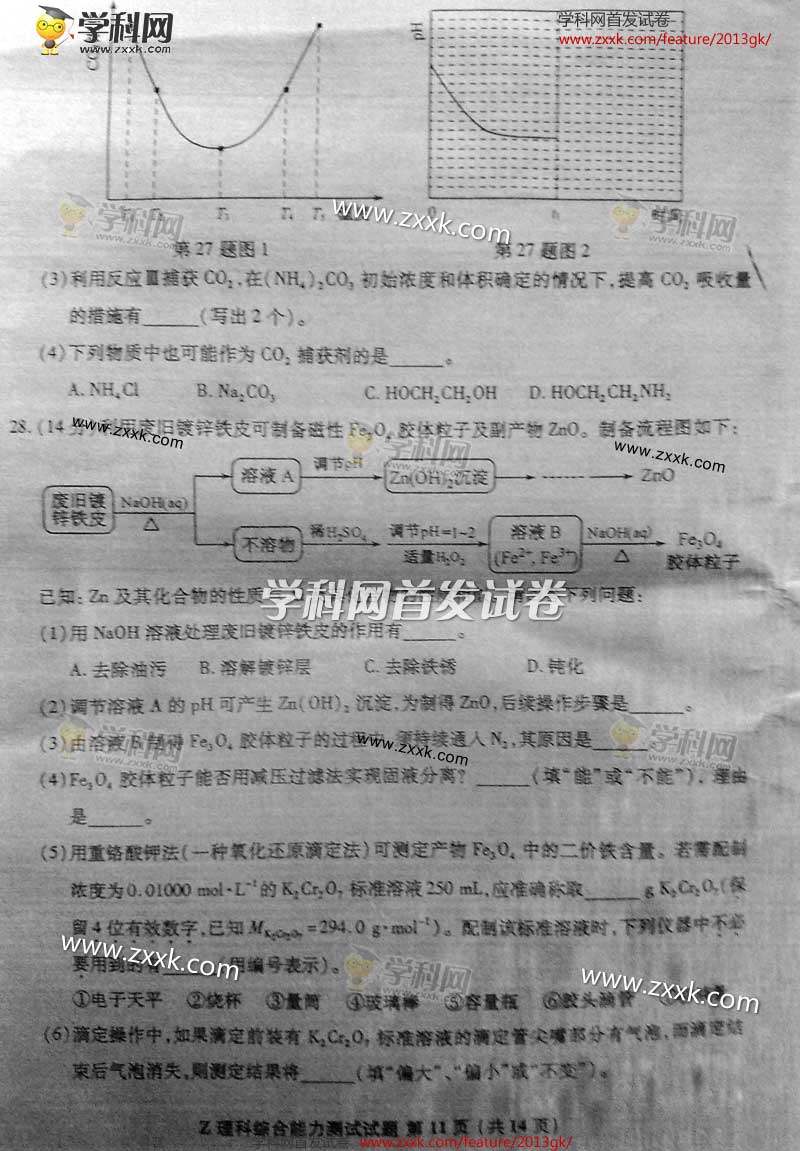 学科网
www.zxxk.com
学科网首发试卷
www.zxxk.com/feature/2013gk/
pH
T3 T4 T5
0 t1 时间
学科网 www.zxxk.com 学科网
第27题图1 第27题图2
(3)利用反应Ⅲ捕获CO2,在(NH4)2CO3初始浓度和体积确定的情况下,提高CO2吸收量
的措施有______(写出2个)。
(4)下列物质中也可能作为CO2捕获剂的是______。
A. NH4Cl B. Na2CO3 C. HOCH2CH2OH D. HOCH2CH2NH2
28.(14分)利用废旧镀锌铁皮可制备磁性Fe3O4胶体粒子及副产物ZnO。制备流程图如下:
www.zxxk.com 学科网 www.zxxk.com
溶液A 调节pH Zn(OH)2沉淀 ZnO
废旧镀锌铁皮 NaOH(aq) △
不溶物 稀H2SO4 调节pH=1~2 适量H2O2 溶液B (Fe2+, Fe3+) NaOH(aq) △ Fe3O4 胶体粒子
已知:Zn及其化合物的性质 下列问题:
学科网首发试卷
(1)用NaOH溶液处理废旧镀锌铁皮的作用有______。
A. 去除油污 B. 溶解镀锌层 C. 去除铁锈 D. 钝化
(2)调节溶液A的pH可产生Zn(OH)2沉淀,为制得ZnO,后续操作步骤是______。
(3)由溶液B制得Fe3O4胶体粒子的过程中,须持续通入N2,其原因是______。
学科网 www.zxxk.com 学科网
(4)Fe3O4胶体粒子能否用减压过滤法实现固液分离?______(填“能”或“不能”),理由
是______。
(5)用重铬酸钾法(一种氧化还原滴定法)可测定产物Fe3O4中的二价铁含量。若需配制
浓度为0.01000 mol·L-1的K2Cr2O7标准溶液250 mL,应准确称取______g K2Cr2O7(保
留4位有效数字,已知MK2Cr2O7=294.0 g·mol-1)。配制该标准溶液时,下列仪器中不必
要用到的有______用编号表示)。
www.zxxk.com 学科网 www.zxxk.com
①电子天平 ②烧杯 ③量筒 ④玻璃棒 ⑤容量瓶 ⑥胶头滴管
(6)滴定操作中,如果滴定前装有K2Cr2O7标准溶液的滴定管尖嘴部分有气泡,而滴定结
束后气泡消失,则测定结果将______(填“偏大”、“偏小”或“不变”)。
Z 理科综合能力测试试题 第11页(共14页)
学科网首发试卷 www.zxxk.com/feature/2013gk/